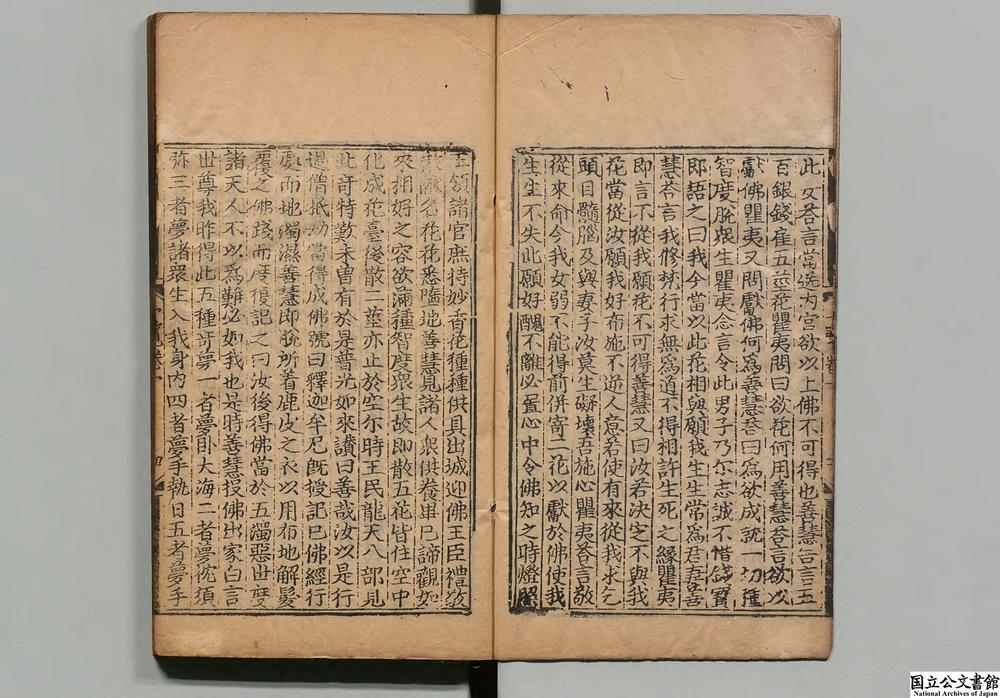 此女荅言當送内宫欲以上佛不可得也善慧荅言五
百銀錢雇五莖花瞿夷問曰欲花何用善慧荅言欲以
獻佛瞿夷又問獻佛何爲善慧荅曰爲欲成就一切種
智度脫衆生瞿夷念言今此男子乃尓志誠不惜錢寳
即語之曰我今當以此花相與願我生生常爲君妻善
慧荅言我修梵行求無爲道不得相許生死之縁瞿夷
即言不從我願花不可得善慧又曰汝若決定不與我
花當從汝願我好布施不逆人意若使有來從我求乞
頭目髓腦及與妻子汝莫生礙壞吾施心瞿夷荅言敬
從來命今我女弱不能得前併寄二花以獻於佛使我
生生不失此願好醜不離必置心中令佛知之時燈照
王領諸官庶持妙香花種種供具出城迎佛王臣禮敬
散名花花悉墮地善慧見諸人衆供養畢已諦觀如
來相好之容欲滿種智度衆生故即散五花皆住空中
化成花臺後散二莖亦止於空尓時王民龍天八部見
此竒特歎未曽有於是普光如來讃曰善哉汝以是行
過僧祇劫當得成佛號曰釋迦牟尼既授記已佛經行
處而地濁濕善慧即脫所着鹿皮之衣以用布地解髪
覆之佛踐而度復記之曰汝後得佛當於五濁惡世度
諸天人不以爲難必如我也是時善慧投佛出家白言
世尊我昨得此五種竒夢一者夢卧大海二者夢枕須
弥三者夢諸衆生入我身内四者夢手執日五者夢手
国立公文書館
National Archives of Japan